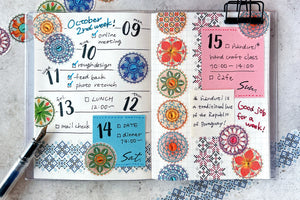 October
2nd week!
09
online
meeting
10
rough design
11
feed back
photo retouch
13
LUNCH
12:00~
12
mail check
14
DATE
dinner
19:00~
Sat.
15
ñandutí
hand craft class
10:00-14:00
Cafe
Sun.
ñandutí is
a traditional lace
of the Republic
of Paraguay!
Good job
for a
week!